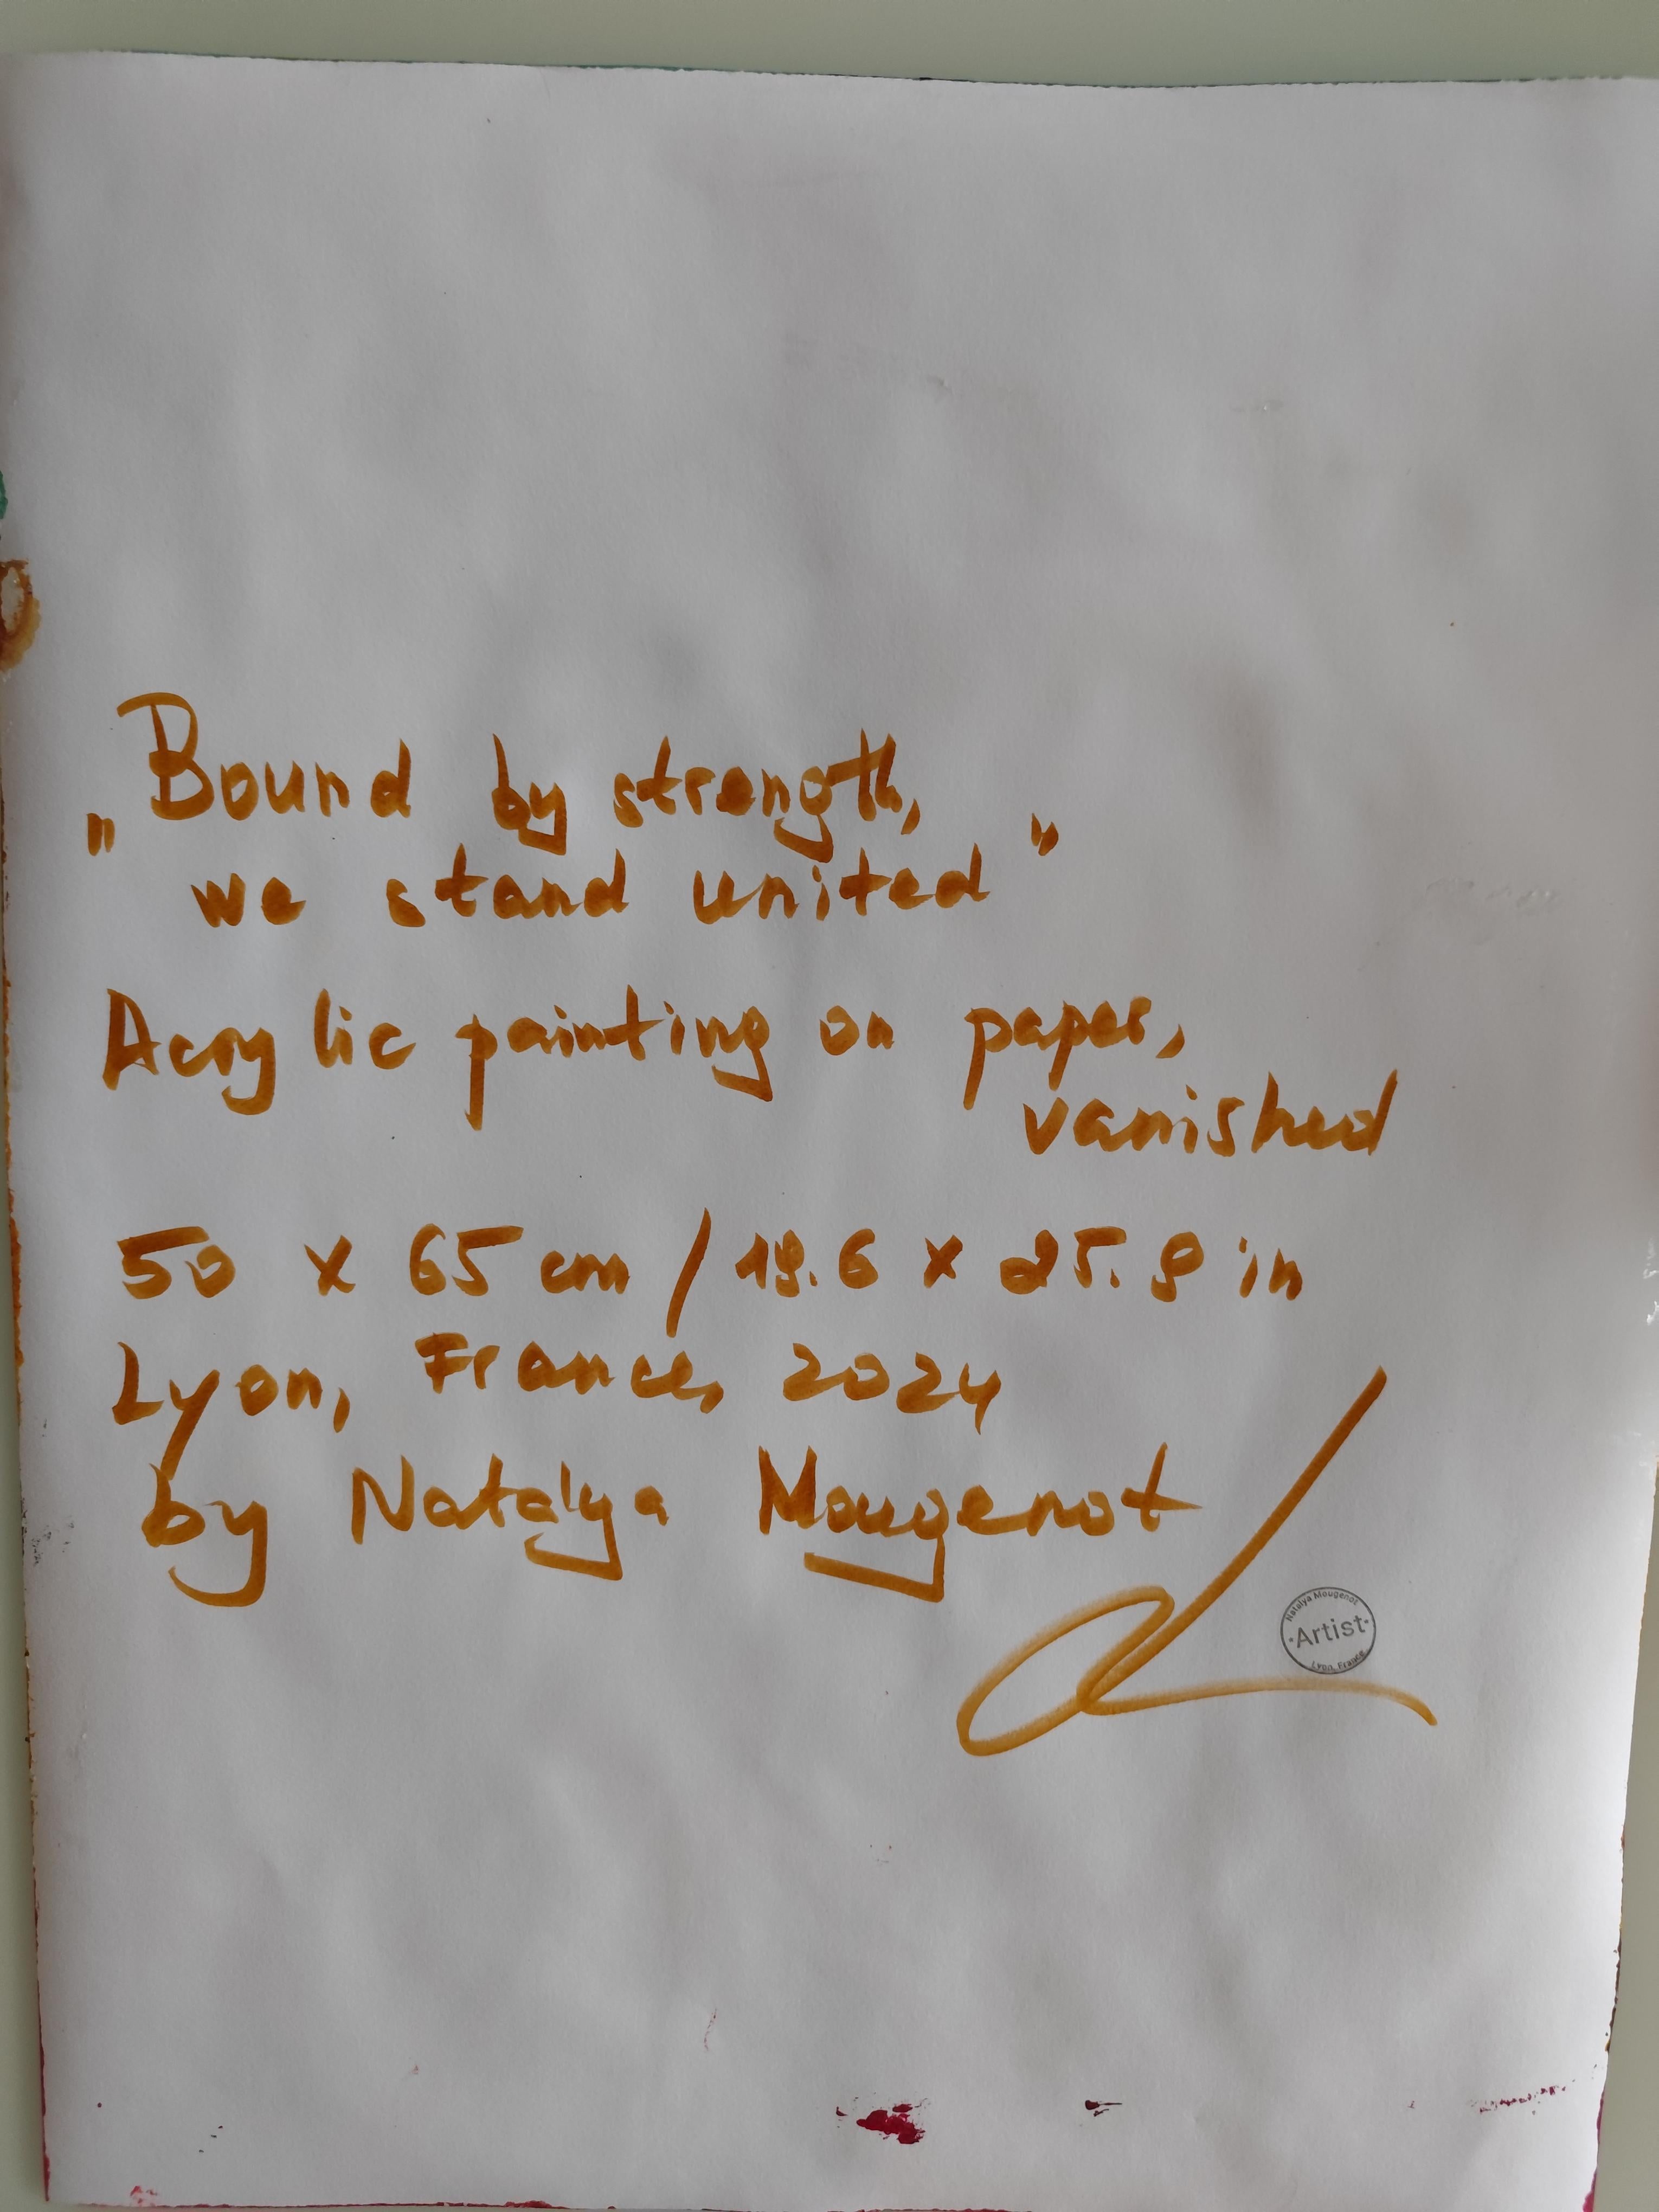 „Bound by strength,
we stand united"
Acrylic painting on paper,
vanished
50 x 65 cm / 19.6 x 25.9 in
Lyon, France, 2024
by Natalya Mougenot
Natalya Mougenot
·Artist·
Lyon, France